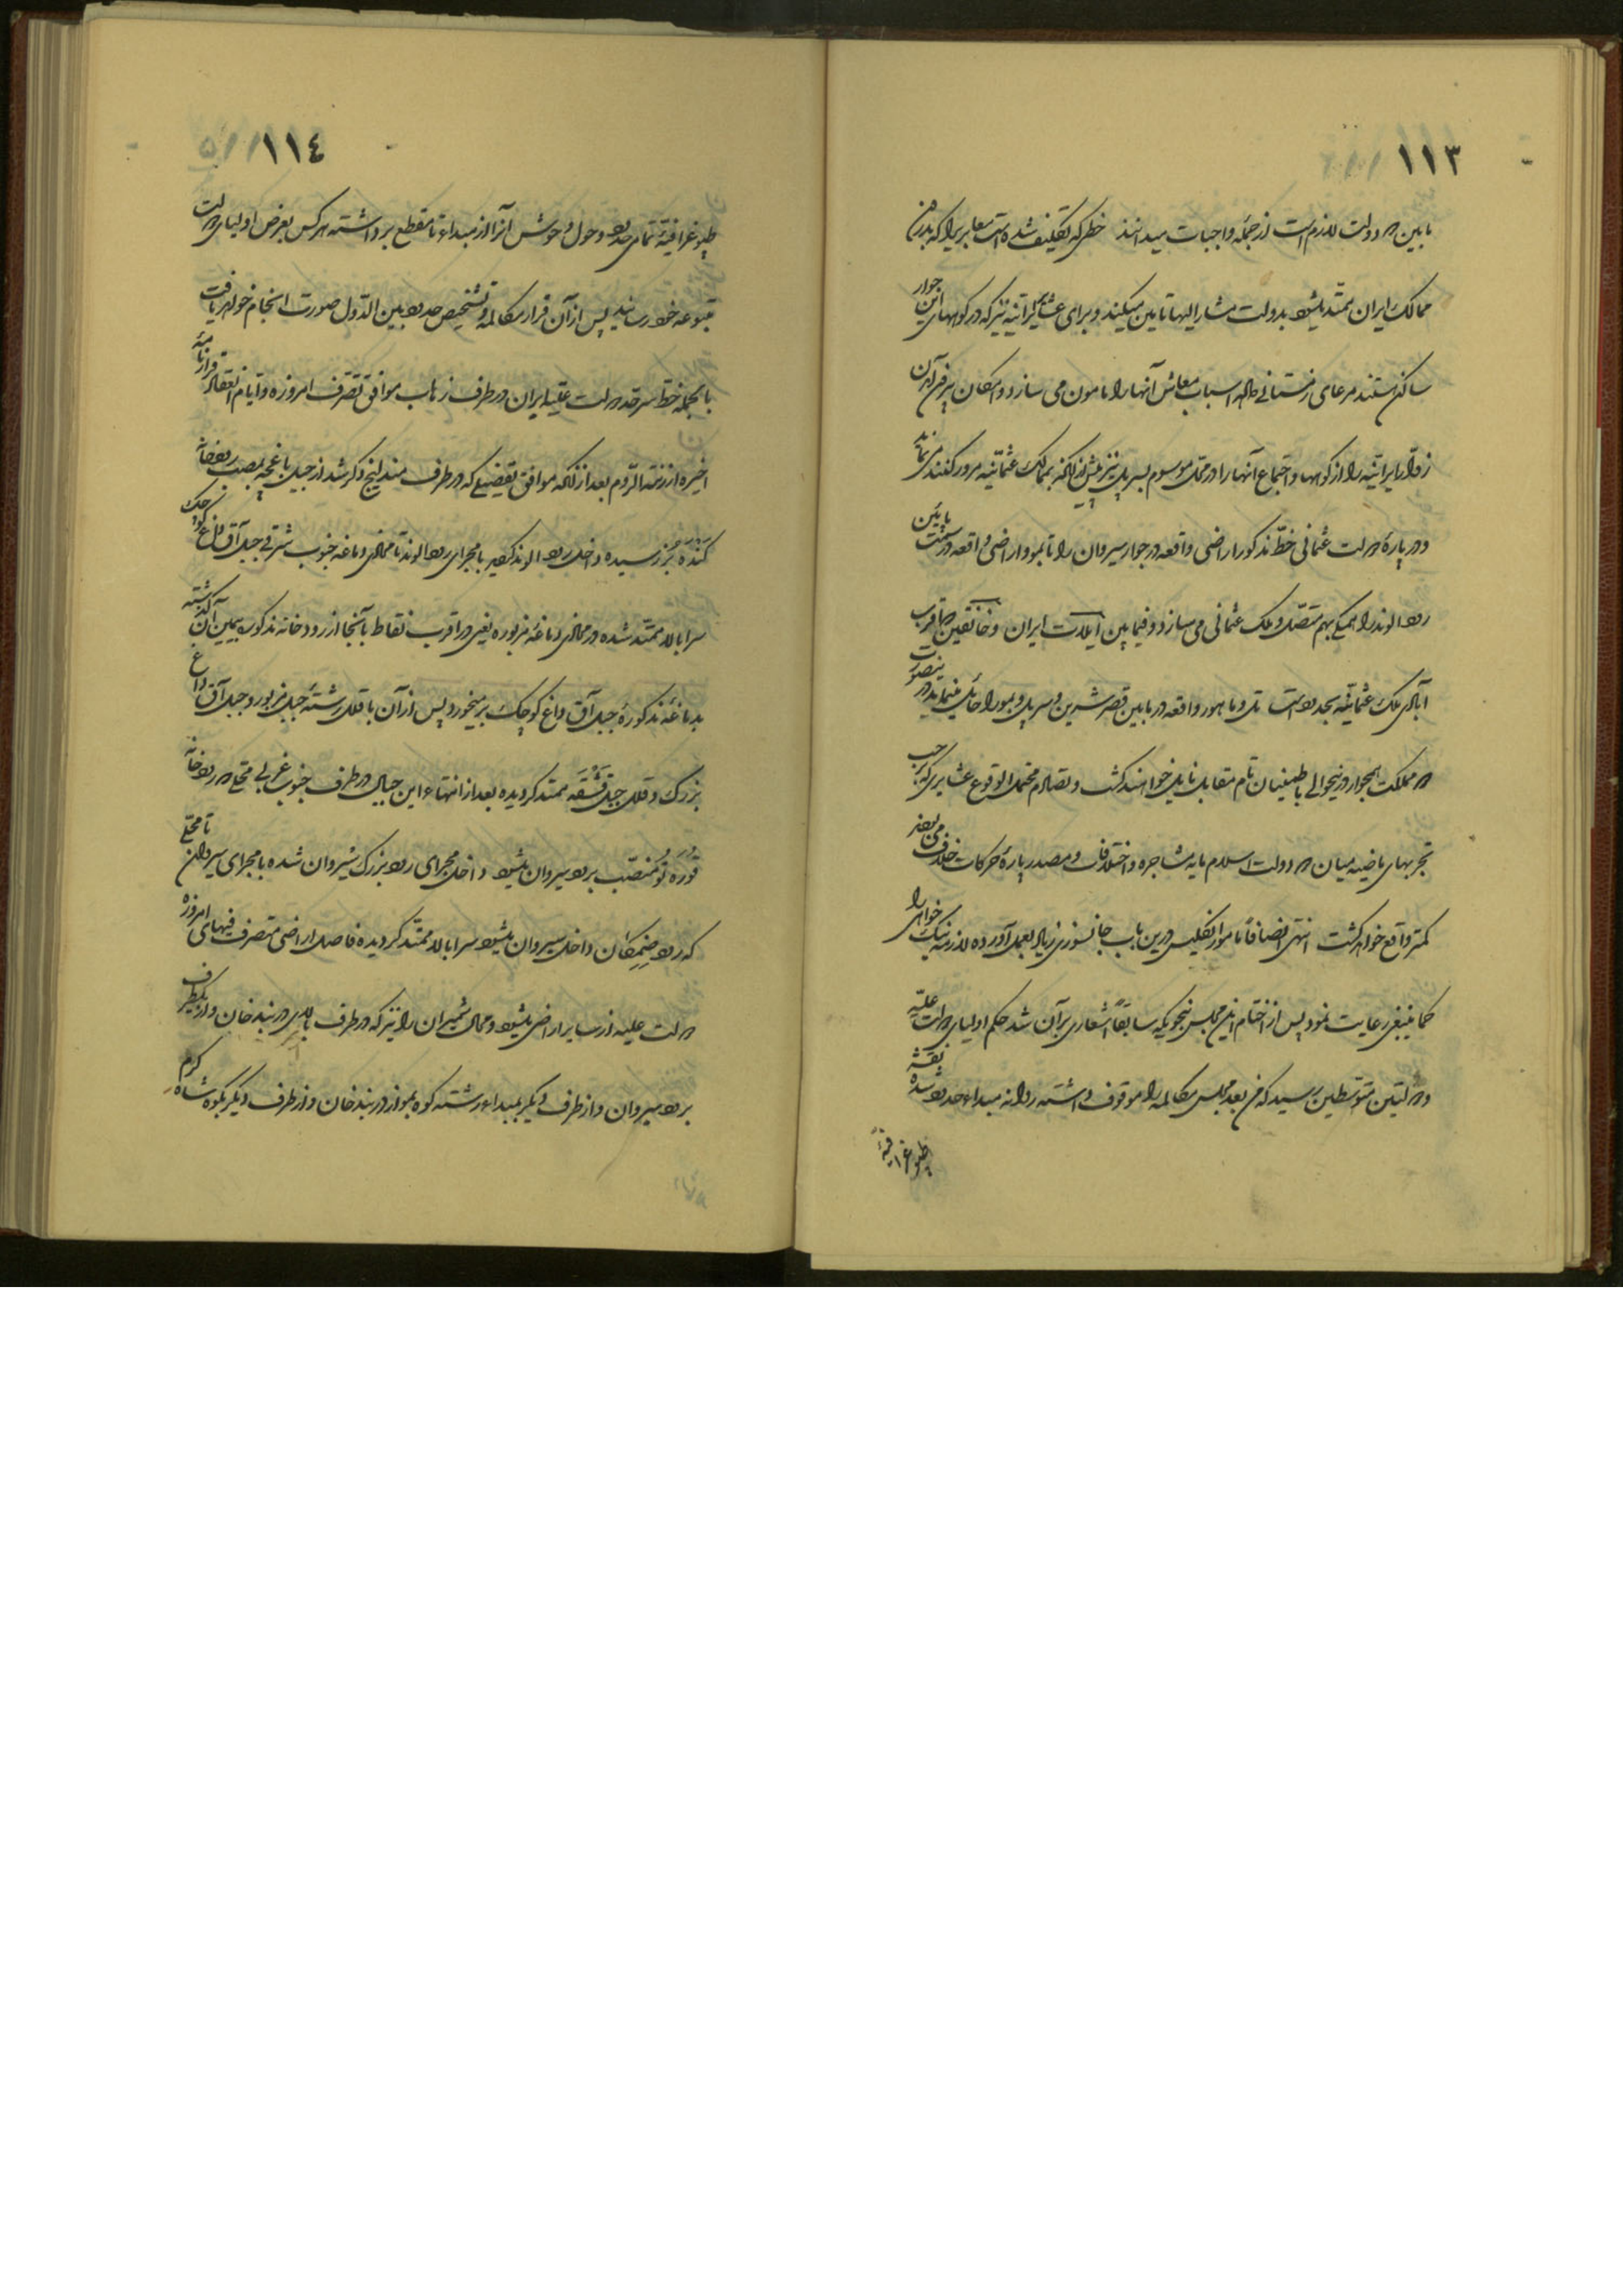 ١١٣
مابین دو دولت لازم است از جمله واجبات میدانند خطی که تکلیف شده است معابر یرا که بدرون
ممالک ایران ممتد میشود بدولت مشار الیها تامین میکند و برای عشایر ایرانیه نیز که در کوههای این جوار
ساکن هستند مرعای زمستانی و اسباب معاش آنها را مامون می سازد و امکان
ایرانیه را از کوهها و اجتماع آنها را در محل موسوم بسرپل نیز پیش از آنکه بممالک عثمانیه مرور کنند می نماید
و درباره دولت عثمانی خط مذکور اراضی واقعه در جوار سیروان را تا بمو و اراضی واقعه در سمت پایین
رود الوند را همگی بهم متصل و ملک عثمانی می سازد و فیما بین ایلات ایران و خانقین و اقرب
آبادی ملک عثمانیه بحدود است تل و ماهور واقعه در مابین قصر شیرین و سرپل و بمو را حایل مینماید در ینصورت
دو مملکت همجوار درینحوالی با طمینان تام مقابل نایل خواهند گشت و تصادم محتمل الوقوع عشایری که بر حسب
تجربهای ماضیه میان دو دولت اسلام مایه مشاجره و اختلافات و مصدر پاره حرکات خلاف می بودند
کمتر واقع خواهد گشت انتهی انصافاً مامور انگلیس درین باب جانسوزی زیاد بعمل آورده لازمه نیک خواهی را
کما ینبغی رعایت نمود پس از اختتام این مجلس بنحویکه سابقاً اشعاری بر آن شد حکم اولیای دولت علیّه
و دولتین متوسطین رسید که من بعد مجلس مکالمه را موقوف داشته روانه مبداء حدود شده نقشه
طپوغرافیهٔ
١١٤
طپوغرافیهٔ تمامی حدود و حول و حوش آنرا از مبداء تا مقطع برداشته هر کس بعرض اولیای دولت
متبوعه خود رساند پس از آن قرار مکالمه و تشخیص حدود بین الدّول صورت انجام خواهد یافت
بالجمله خط سرحد دولت علیّه ایران در طرف زهاب موافق تصرّف امروزه و ایام انعقاد قرارنامهٔ
اخیره ارزنة الرّوم بعد از آنکه موافق تفصیلی که در طرف مندلیج ذکر شد از جبل باغچه بمصب رودخانه
کنده بزر رسیده داخل رود الوند گردید با مجرای رود الوند تا محاذی دماغه جنوب شرقی جبل آق داغ کوچک
سرابالا ممتد شده در محاذی دماغهٔ مزبوره یعنی در اقرب نقاط بآنجا از رودخانه مذکوره بیمین آن گذشته
بدماغهٔ مذکورهٔ جبل آق داغ کوچک بر میخورد پس از آن با قلل رشتهٔ جبل مزبور و جبل آق داغ
بزرگ و قلل جبل قشقه ممتد گردیده بعد از انتهاء این جبال در طرف جنوب غربی بمحلی که رودخانه
قوره تو منصب برود سیروان میشود داخل مجرای رود بزرگ سیروان شده با مجرای سیروان تا محلی
که رود ضمکان داخل سیروان میشود سرابالا ممتد گردیده فاصل اراضی متصرف فیهای امروزه
دولت علیه از سایر اراضی میشود و محال شمیران را نیز که در طرف بالای دربند خان و از یکطرف
برود سیروان و از طرف دیگر بمبداء رشته کوه بمو از دربند خان و از طرف دیگر بکوه شاه کرم